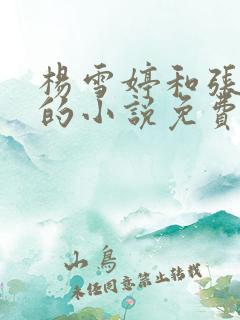 楊雪婷和張
的小說免費
山鳥
未经同意禁止转载